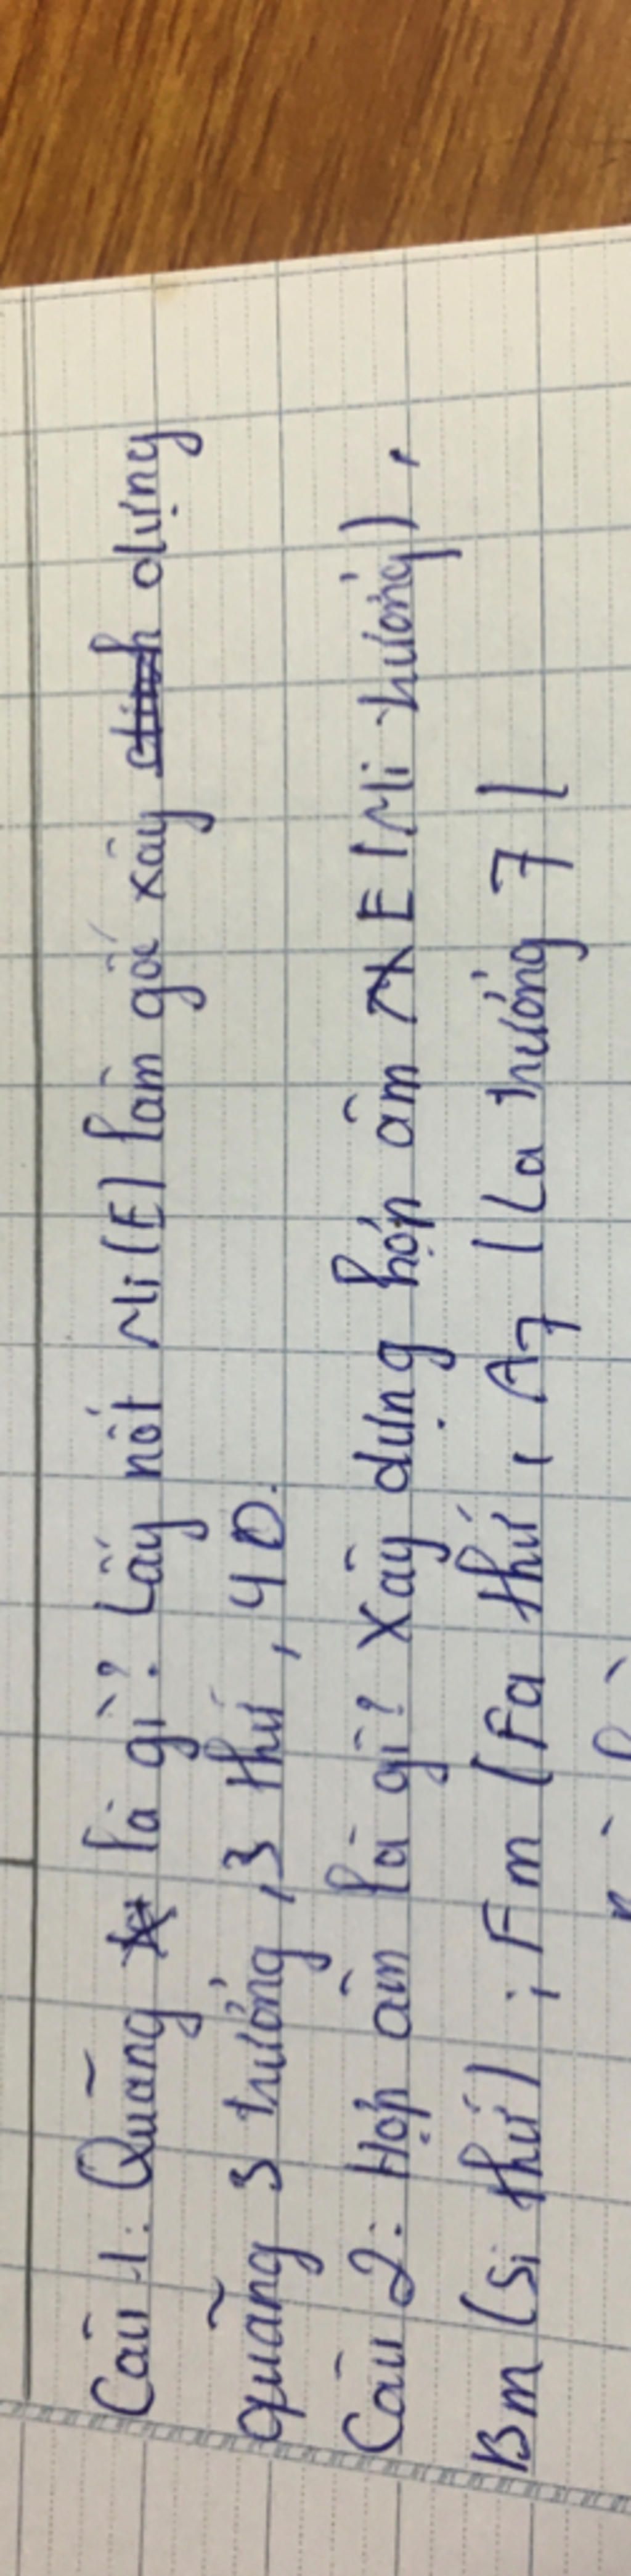 Câu 1: Quãng là gì? Lấy nốt Mi (E) làm gốc xây dựng
quãng 3 trưởng, 3 thứ, 4Đ.
Câu 2: Hợp âm là gì? Xây dựng hợp âm E (Mi trưởng),
Bm (Si thứ); Fm (Fa thứ, A7 (La trưởng 7)